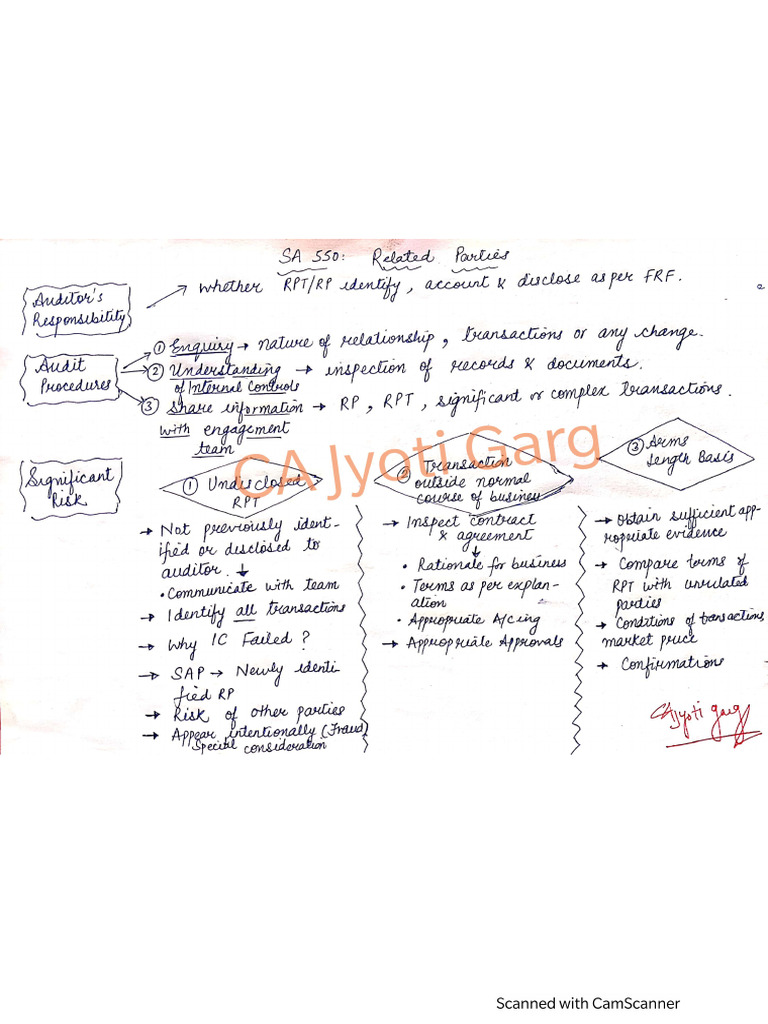 SA 550: Related Parties
Auditor's
Responsibility
→ whether RPT/RP identify, account & disclose as per FRF.
Audit
Procedures
① Enquiry → nature of relationship, transactions or any change.
② Understanding → inspection of records & documents.
of Internal Controls
③ Share information → RP, RPT, significant or complex transactions.
with engagement
team
CA Jyoti Garg
Significant
Risk
① Undisclosed
RPT
→ Not previously ident-
ified or disclosed to
auditor. ↓
• Communicate with team
→ Identify all transactions
→ Why IC Failed?
→ SAP → Newly identi
fied RP
→ Risk of other parties
→ Appear intentionally (Fraud)
Special consideration
② Transaction
outside normal
course of business
→ Inspect contract
& agreement
↓
• Rationale for business
• Terms as per explan-
ation
• Appropriate A/cing
→ Appropriate Approvals
③ Arms
Length Basis
→ Obtain sufficient app-
ropriate evidence
→ Compare terms of
RPT with unrelated
parties
→ Conditions of transactions
market price
→ Confirmations
CA Jyoti Garg
Scanned with CamScanner